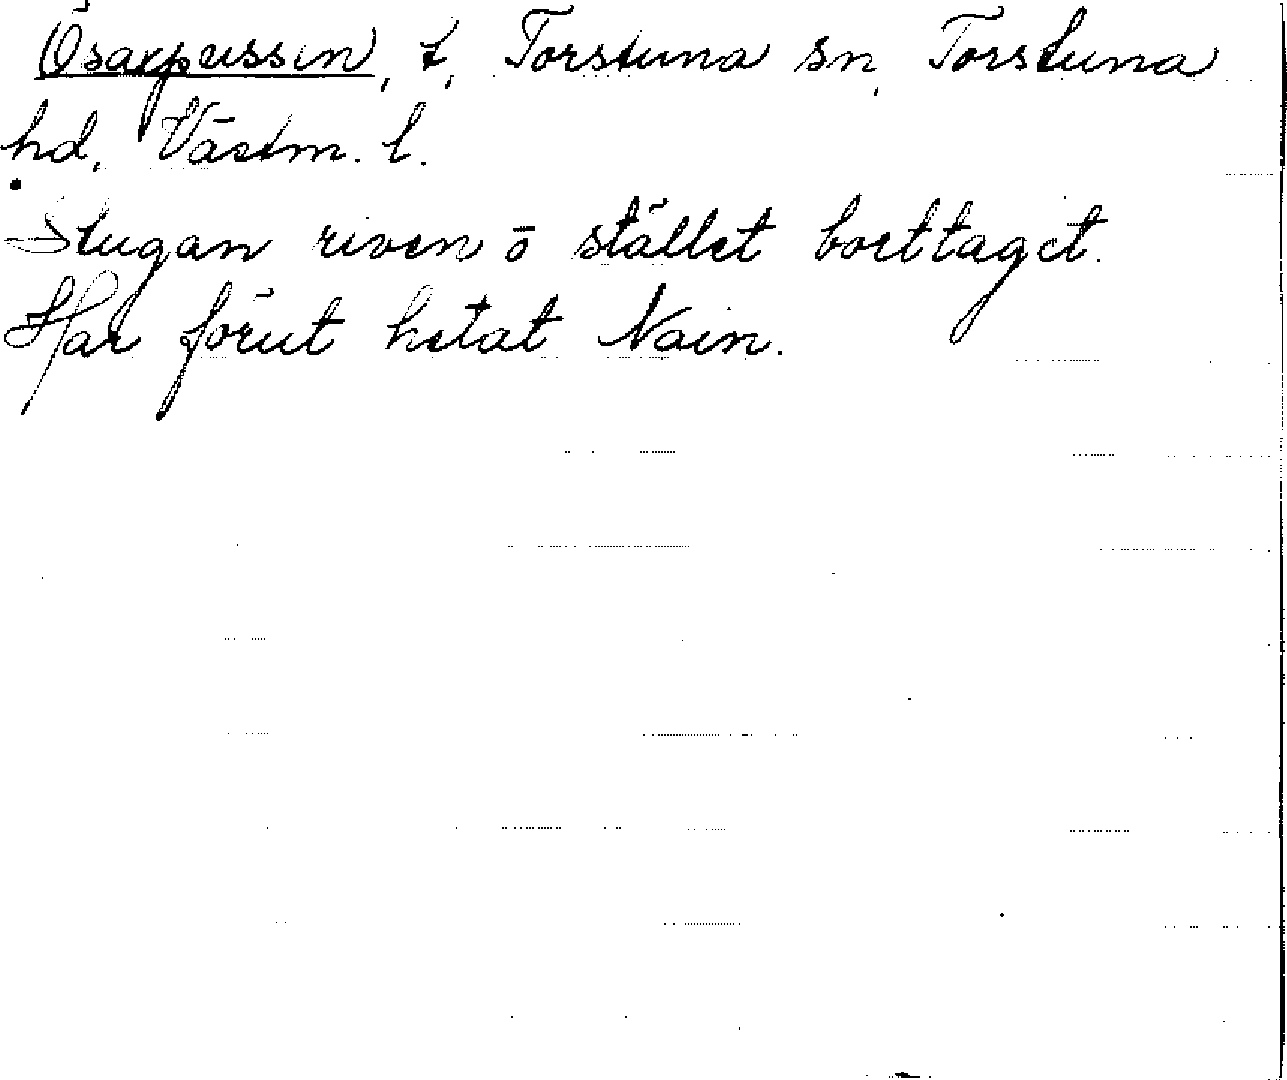 Ösarpussin, t, Torstuna sn, Torstuna
hd, Västm. l.
Stugan riven ō stället borttaget.
Har förut hetat Nain.